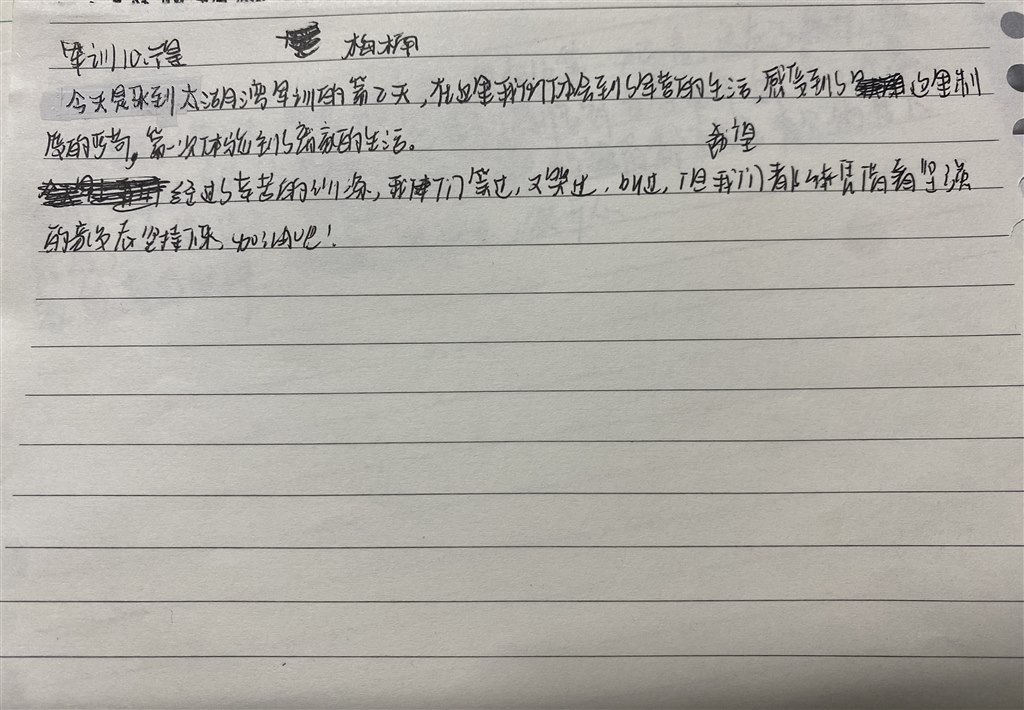 军训10.
今天是来到太湖湾军训的第2天，在这里我们体会到了军营的生活，感受到了这里制
度的严苛。第一次体验到了离家的生活。
希望
经过了辛苦的训练，我们笑过，又哭过，叫过，但我们都凭借着坚强
的意志在坚持下来，加油吧！